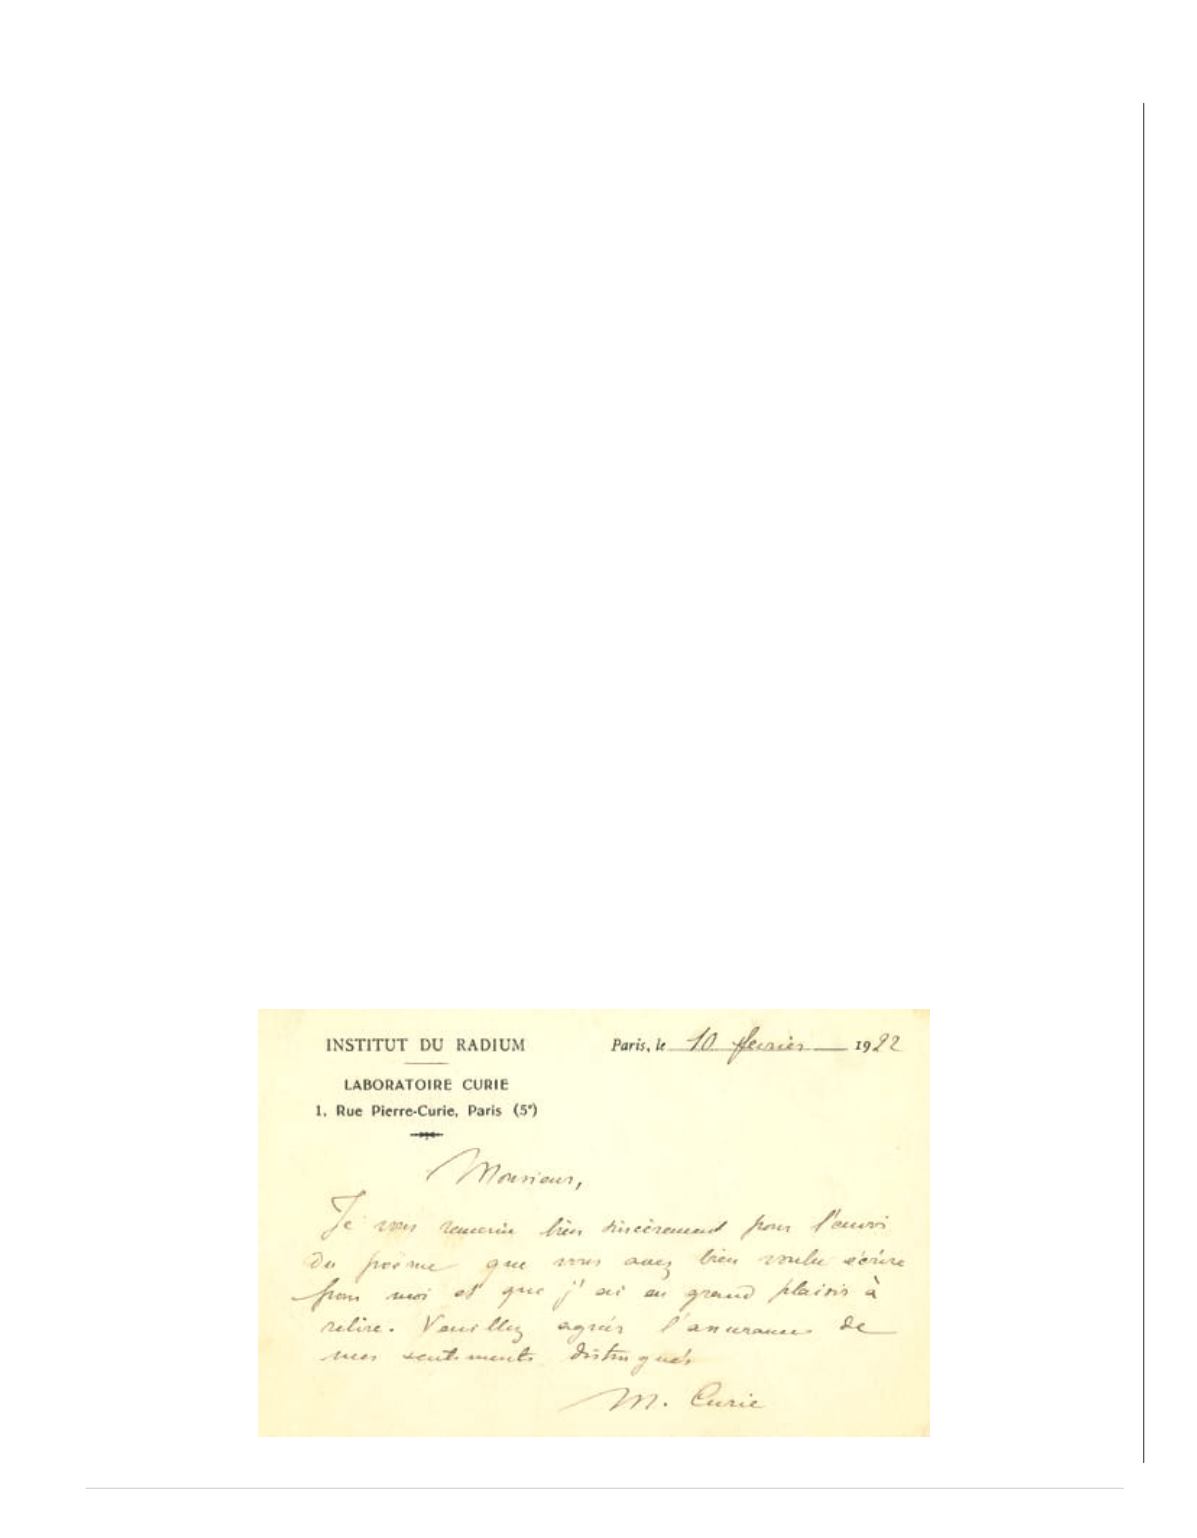 INSTITUT DU RADIUM
Paris, le 10 fevrier 1922
LABORATOIRE CURIE
1, Rue Pierre-Curie, Paris (5ᵉ)
Monsieur,
Je vous remercie bien sincèrement pour l'envoi
du poème que vous avez bien voulu écrire
pour moi et que j'ai eu grand plaisir à
relire. Veuillez agréer l'assurance de
mes sentiments distingués
M. Curie